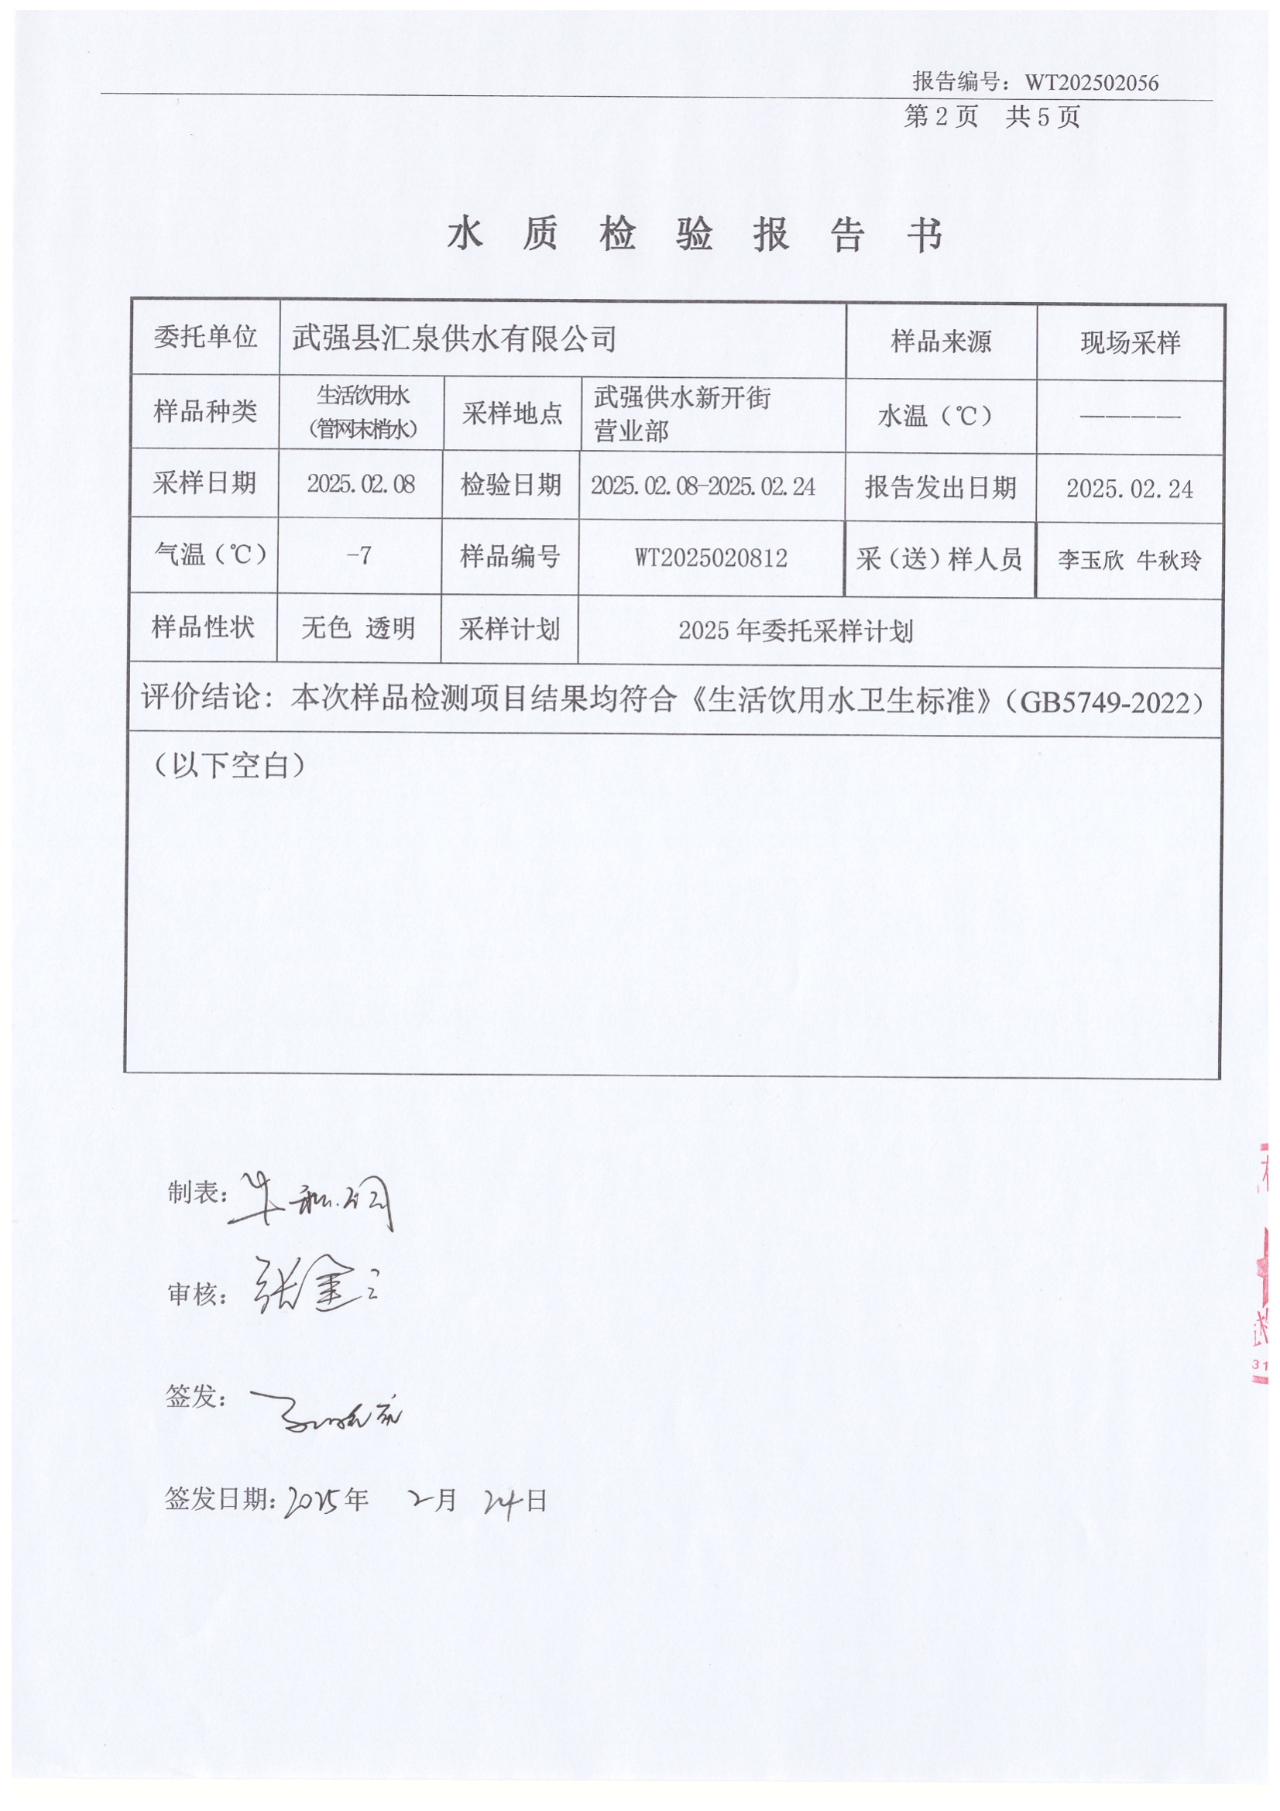 报告编号：WT202502056
第 2 页 共 5 页
水 质 检 验 报 告 书
委托单位 武强县汇泉供水有限公司 样品来源 现场采样
样品种类 生活饮用水（管网末梢水） 采样地点 武强供水新开街营业部 水温（℃） ————
采样日期 2025.02.08 检验日期 2025.02.08-2025.02.24 报告发出日期 2025.02.24
气温（℃） -7 样品编号 WT2025020812 采（送）样人员 李玉欣 牛秋玲
样品性状 无色 透明 采样计划 2025 年委托采样计划
评价结论：本次样品检测项目结果均符合《生活饮用水卫生标准》（GB5749-2022）
（以下空白）
制表：
审核：
签发：
签发日期：2025年 2月 24日
31